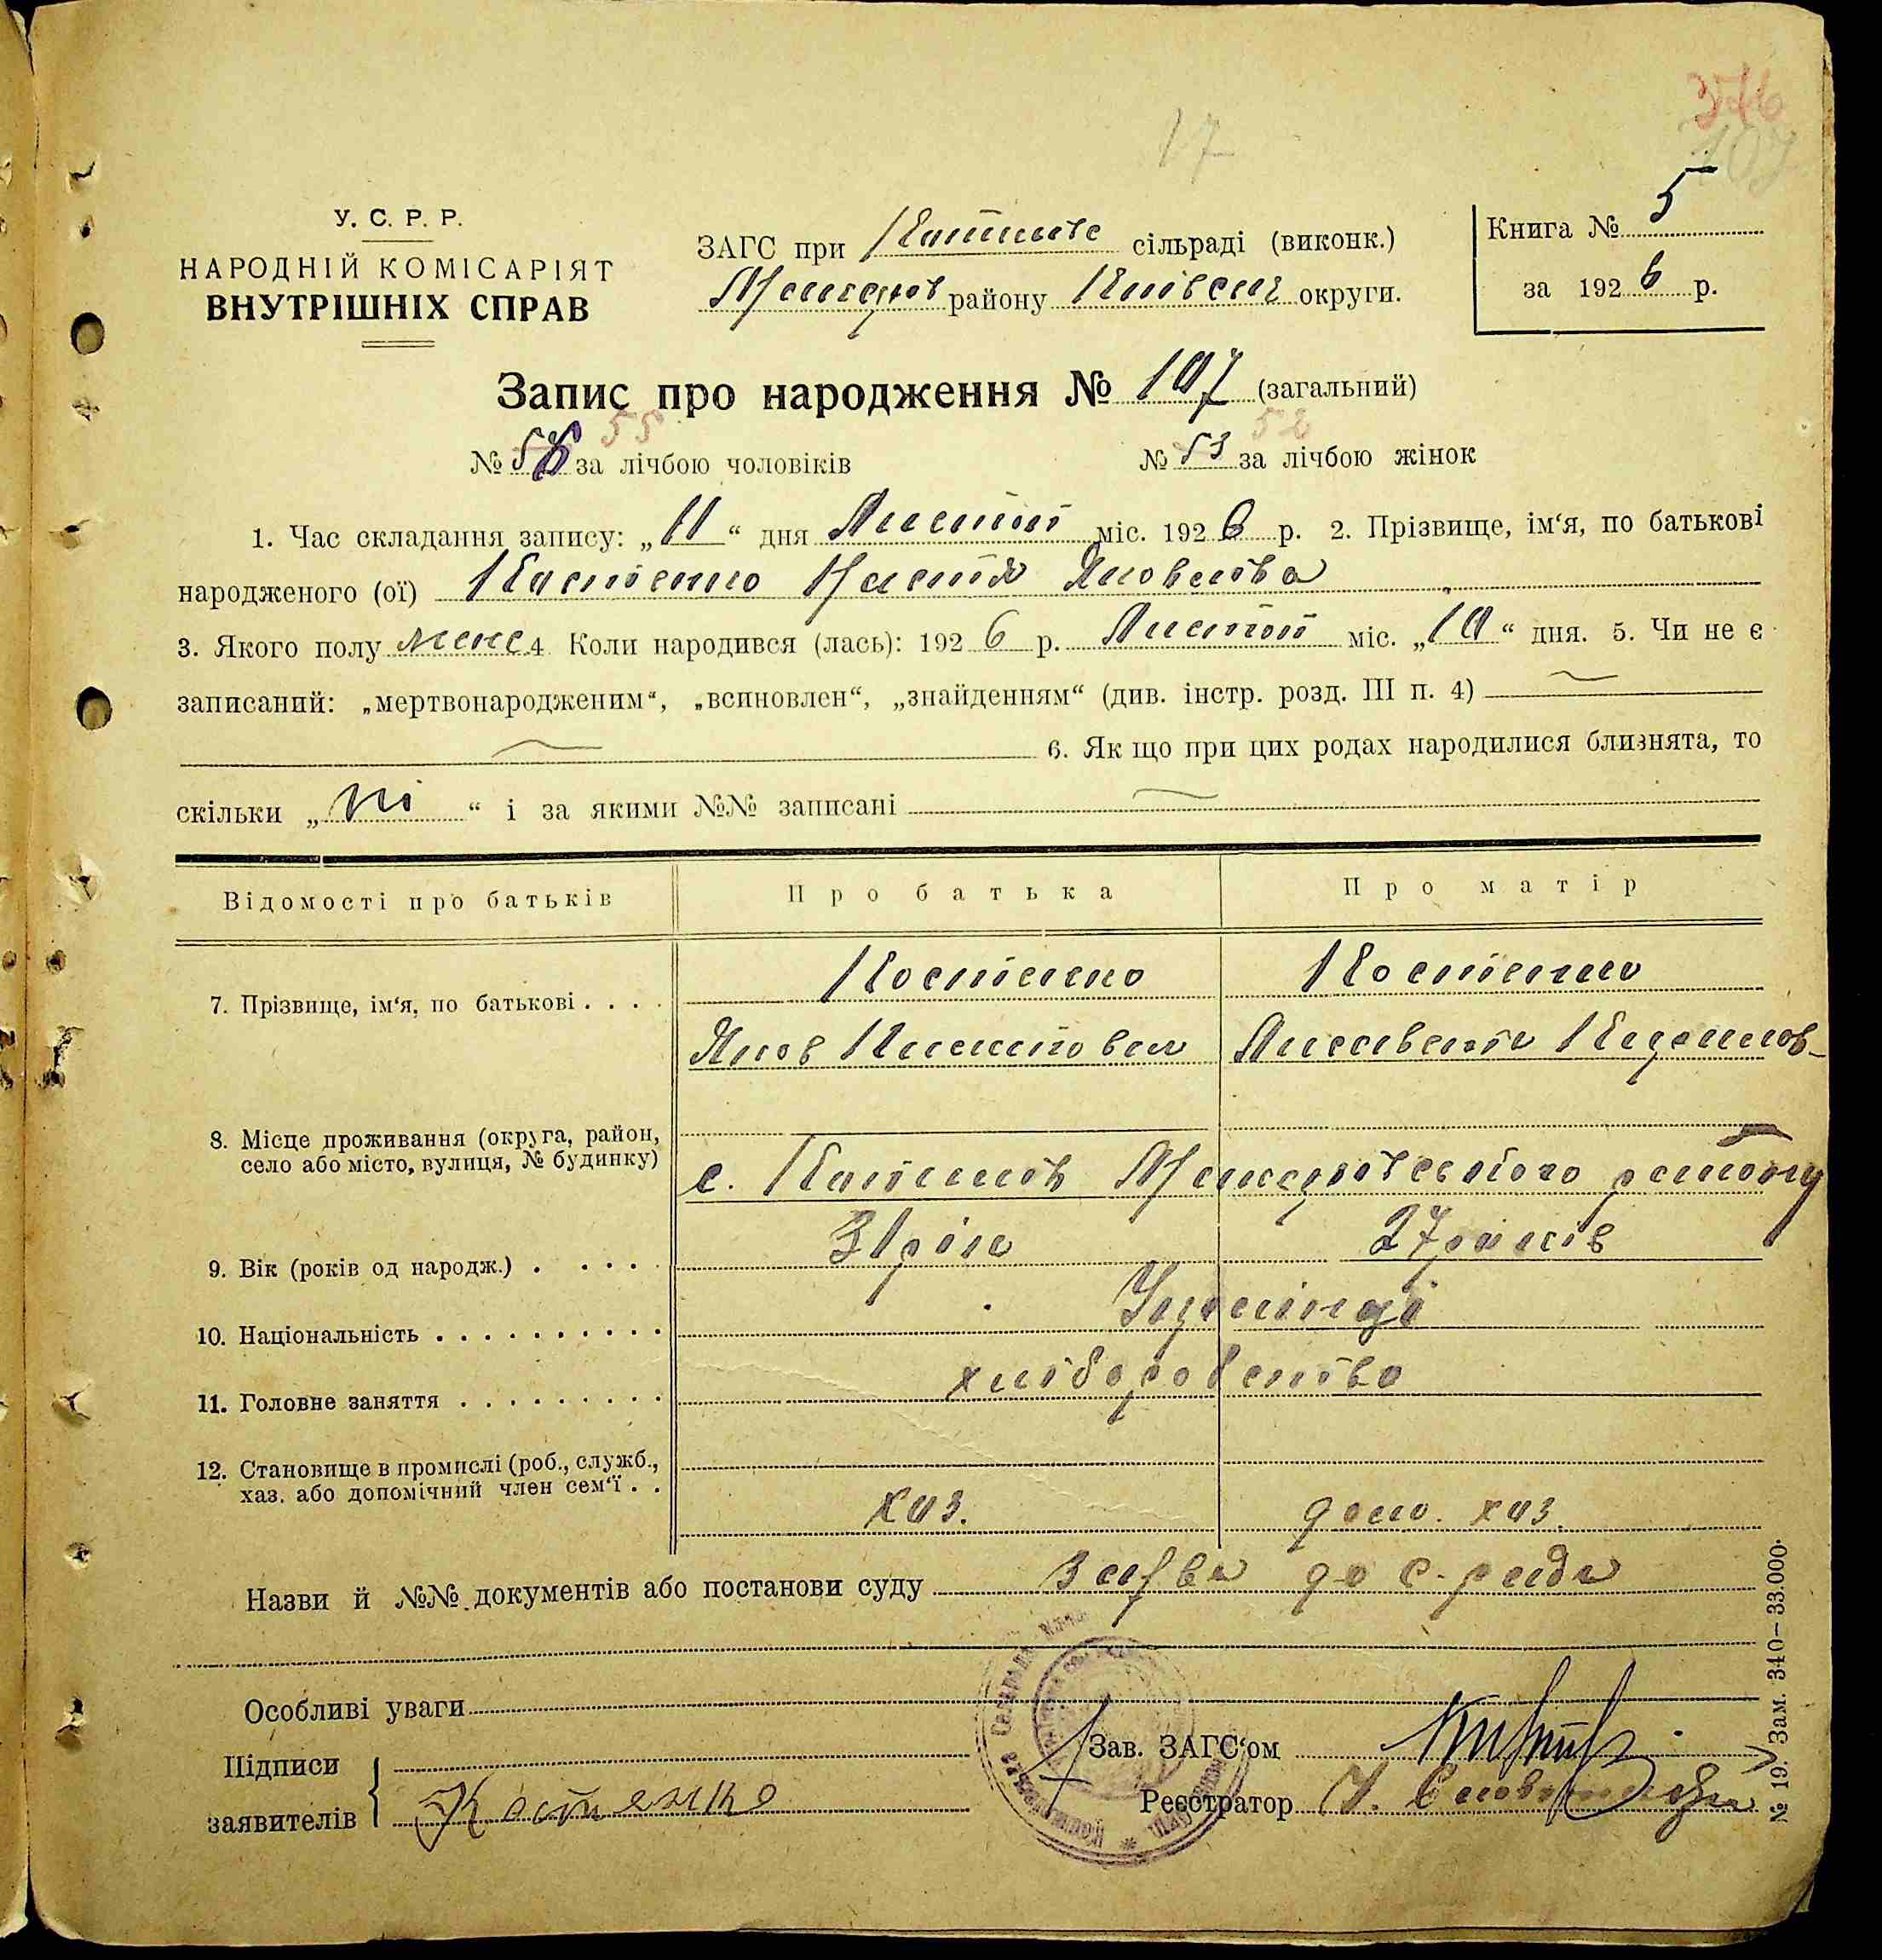 376
17
107
У. С. Р. Р.
НАРОДНІЙ КОМІСАРІЯТ
ВНУТРІШНІХ СПРАВ
ЗАГС при сільраді (виконк.)
району Київськ округи.
Книга № 5
за 1926 р.
Запис про народження № 107 (загальний)
55 52
№ за лічбою чоловіків № 53 за лічбою жінок
1. Час складання запису: „11“ дня Лютий міс. 1926 р. 2. Прізвище, ім‘я, по батькові
народженого (ої) Костенко Настя Яковлівна
3. Якого полу жіноч 4 Коли народився (лась): 1926 р. Лютий міс. „10“ дня. 5. Чи не є
записаний: „мертвонародженим“, „всиновлен“, „знайденням“ (див. інстр. розд. III п. 4)
6. Як що при цих родах народилися близнята, то
скільки „ні“ і за якими №№ записані
Відомості про батьків Про батька Про матір
7. Прізвище, ім‘я, по батькові . . . . Костенко Костенко
Яков
8. Місце проживання (округа, район,
село або місто, вулиця, № будинку)
с. району
9. Вік (років од народж.) . . . . . 31 рік 27 років
10. Національність . . . . . . . . . . Українці
11. Головне заняття . . . . . . . . . хліборобство
12. Становище в промислі (роб., служб.,
хаз. або допомічний член сем‘ї . . хаз. дом. хаз.
Назви й №№ документів або постанови суду заява до с-ради
Особливі уваги
Підписи
заявителів Костенко
Зав. ЗАГС‘ом
Реєстратор
№ 19. Зам. 340–33.000.